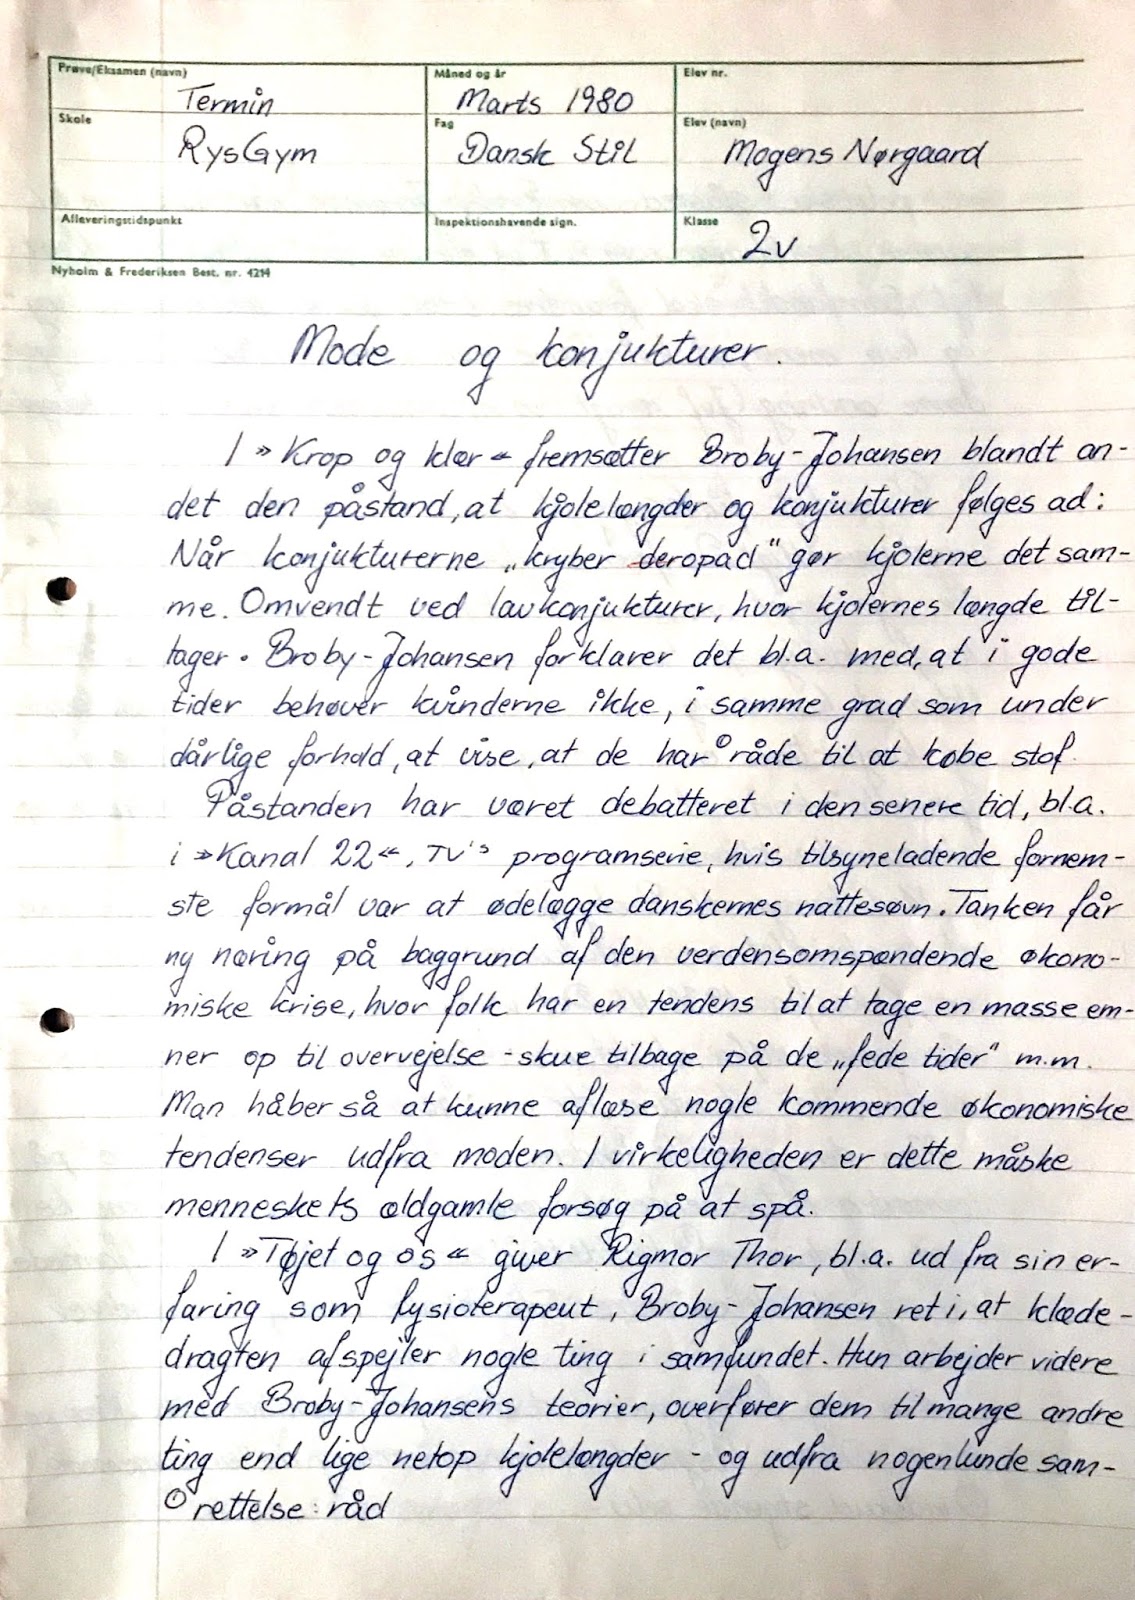 Prøve/Eksamen (navn) Måned og år Elev nr.
Termin Marts 1980
Skole Fag Elev (navn)
RysGym Dansk Stil Mogens Nørgaard
Afleveringstidspunkt Inspektionshavende sign. Klasse
2v
Nyholm & Frederiksen Best. nr. 4214
Mode og konjukturer.
I »Krop og klær« fremsætter Broby-Johansen blandt an-
det den påstand, at kjolelængder og konjukturer følges ad:
Når konjukturerne „kryber deropad" gør kjolerne det sam-
me. Omvendt ved lavkonjukturer, hvor kjolernes længde til-
tager. Broby-Johansen forklarer det bl.a. med, at i gode
tider behøver kvinderne ikke, i samme grad som under
dårlige forhold, at vise, at de har råde til at købe stof.
Påstanden har været debatteret i den senere tid, bl.a.
i »Kanal 22«, TV's programserie, hvis tilsyneladende fornem-
ste formål var at ødelægge danskernes nattesøvn. Tanken får
ny næring på baggrund af den verdensomspændende økono-
miske krise, hvor folk har en tendens til at tage en masse em-
ner op til overvejelse - skue tilbage på de „fede tider" m.m.
Man håber så at kunne aflæse nogle kommende økonomiske
tendenser udfra moden. I virkeligheden er dette måske
menneskets ældgamle forsøg på at spå.
I »Tøjet og os« giver Rigmor Thor, bl.a. ud fra sin er-
faring som fysioterapeut, Broby-Johansen ret i, at klæde-
dragten afspejler nogle ting i samfundet. Hun arbejder videre
med Broby-Johansens teorier, overfører dem til mange andre
ting end lige netop kjolelængder - og udfra nogenlunde sam-
rettelse: råd